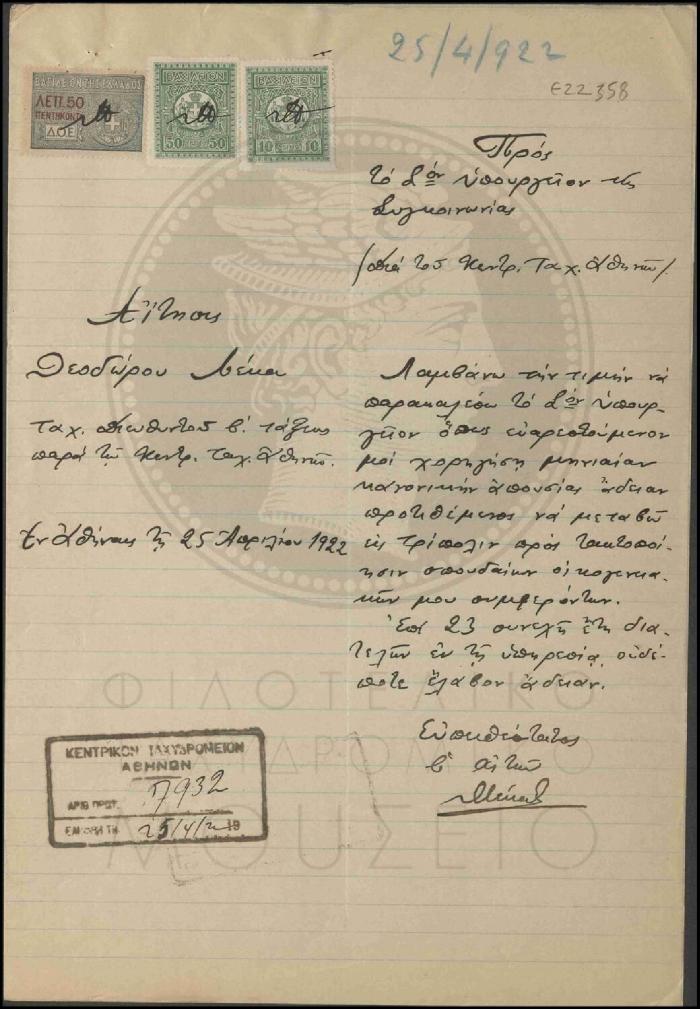 25/4/922
Ε22358
ΒΑΣΙΛΕΙΟΝ ΤΗΣ ΕΛΛΑΔΟΣ
ΛΕΠ. 50
ΠΕΝΤΗΚΟΝΤΑ
ΔΟΕ
ΒΑΣΙΛΕΙΟΝ
50 50
ΒΑΣΙΛΕΙΟΝ
10 10
Πρός
τό Σον Ὑπουργεῖον τῆς
Συγκοινωνίας
/διά τοῦ Κεντρ. Ταχ. Ἀθηνῶν/
Αἴτησις
Θεοδώρου Λέκα
ταχ. διευθυντοῦ β. τάξεως
παρά τῷ Κεντρ. Ταχ. Ἀθηνῶν.
Ἐν Ἀθήναις τῇ 25 Ἀπριλίου 1922
Λαμβάνω τήν τιμήν νά
παρακαλέσω τό Σον Ὑπουρ-
γεῖον ὅπως εὐαρεστούμενον
μοί χορηγήσῃ μηνιαίαν
κανονικήν ἀπουσίας ἄδειαν
προτιθέμενος νά μεταβῶ
εἰς Τρίπολιν πρός τακτοποί-
ησιν σπουδαίων οἰκογενεια-
κῶν μου συμφερόντων.
Ἐπί 23 συνεχῆ ἔτη δια-
τελῶν ἐν τῇ ὑπηρεσίᾳ οὐδέ-
ποτε ἔλαβον ἄδειαν.
Εὐπειθέστατος
ὁ αἰτῶν
ΚΕΝΤΡΙΚΟΝ ΤΑΧΥΔΡΟΜΕΙΟΝ
ΑΘΗΝΩΝ
ΑΡΙΘ. ΠΡΩΤ. 17932
25/4/22 19
ΦΙΛΟΤΕΛΙΚΟ
ΤΑΧΥΔΡΟΜΙΚΟ
ΜΟΥΣΕΙΟ